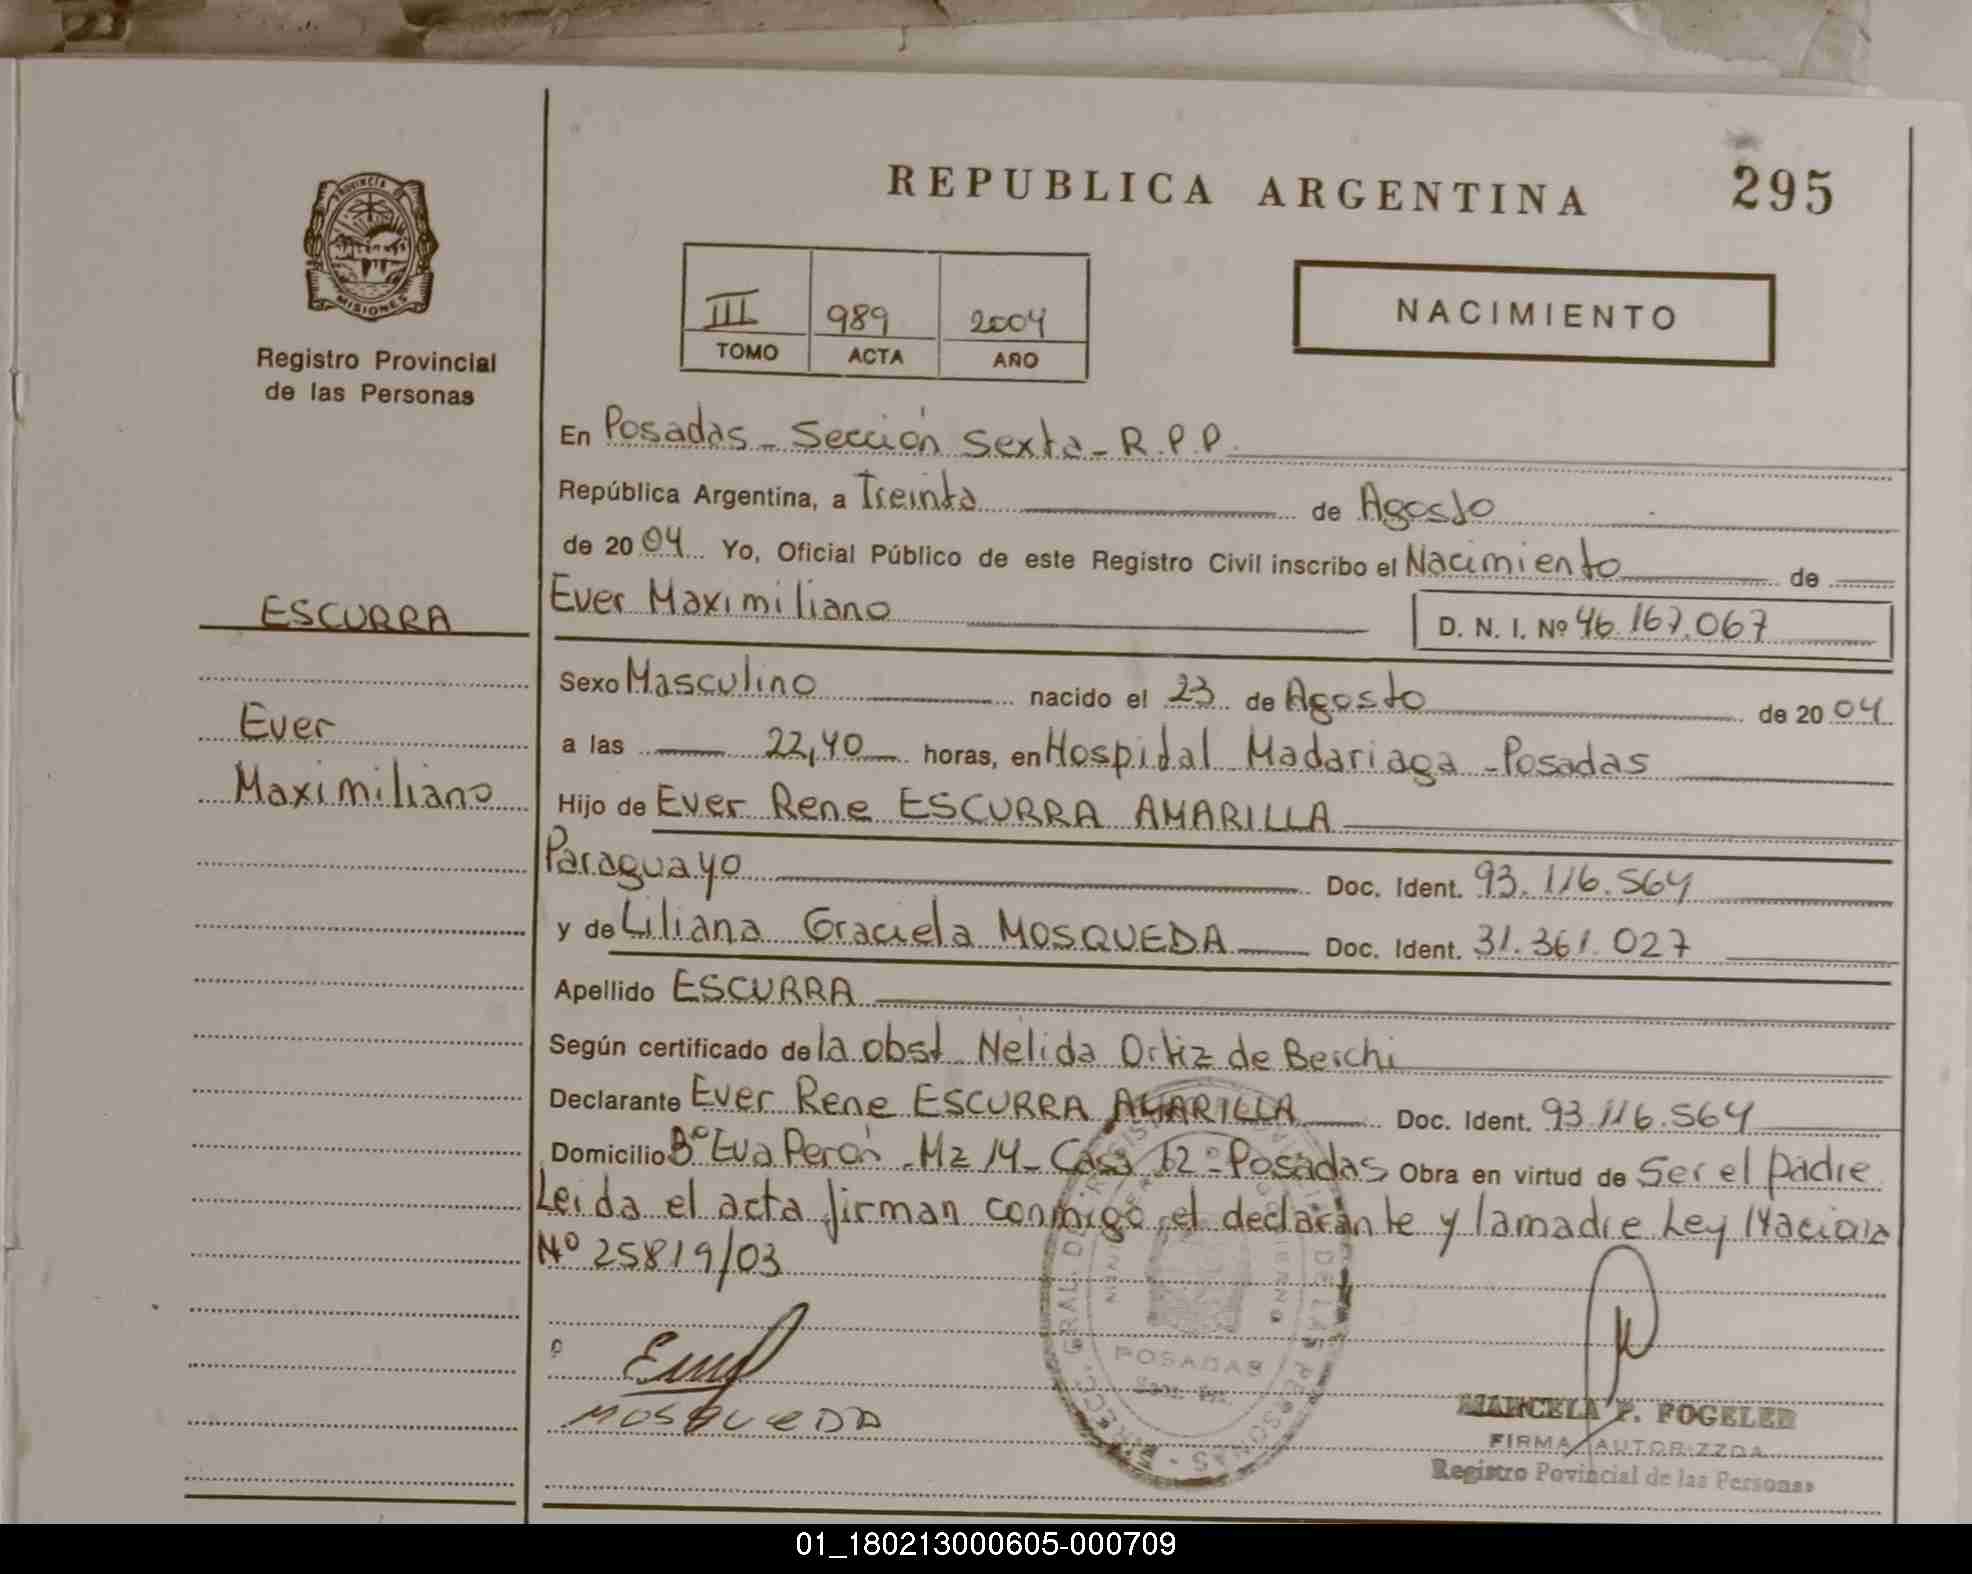 REPUBLICA ARGENTINA
295
PROVINCIA DE
MISIONES
Registro Provincial
de las Personas
III 989 2004
TOMO ACTA AÑO
NACIMIENTO
En Posadas - Sección Sexta - R.P.P.
República Argentina, a Treinta de Agosto
de 2004 Yo, Oficial Público de este Registro Civil inscribo el Nacimiento de
Ever Maximiliano D. N. I. Nº 46.167.067
ESCURRA
Ever
Maximiliano
Sexo Masculino nacido el 23 de Agosto de 2004
a las 22,40 horas, en Hospital Madariaga - Posadas
Hijo de Ever Rene ESCURRA AMARILLA
Paraguayo Doc. Ident. 93.116.564
y de Liliana Graciela MOSQUEDA Doc. Ident. 31.361.027
Apellido ESCURRA
Según certificado de la obst Nelida Ortiz de Berchi
Declarante Ever Rene ESCURRA AMARILLA Doc. Ident. 93.116.564
Domicilio Bº Eva Perón - Mz 14 - Casa 12 - Posadas Obra en virtud de Ser el padre
Leida el acta firman conmigo el declarante y la madre Ley Nacional
Nº 25819/03
MOSQUEDA
POSADAS
MARCELA P. FOGELER
FIRMA AUTORIZZDA
Registro Povincial de las Personas
01_180213000605-000709